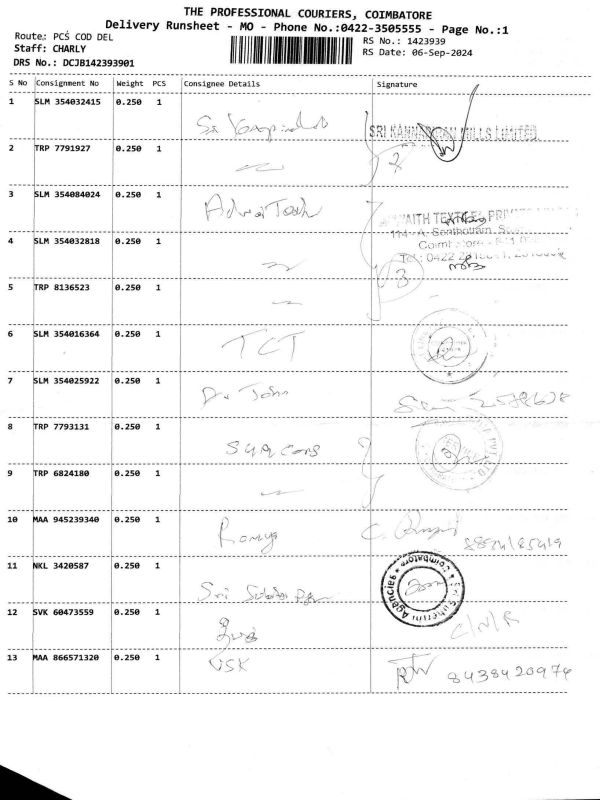 THE PROFESSIONAL COURIERS, COIMBATORE
Delivery Runsheet - MO - Phone No.:0422-3505555 - Page No.:1
Route: PCS COD DEL
RS No.: 1423939
Staff: CHARLY
RS Date: 06-Sep-2024
DRS No.: DCJB142393901
S No Consignment No Weight PCS Consignee Details Signature
1 SLM 354032415 0.250 1
SRI KANNAPIRAN MILLS LIMITED
2 TRP 7791927 0.250 1 2
3 SLM 354084024 0.250 1
TEXTILES PRIVATE
114-A, Santhottam,
4 SLM 354032818 0.250 1
Coimbatore
Tel : 0422
3
5 TRP 8136523 0.250 1
6 SLM 354016364 0.250 1 TCT
7 SLM 354025922 0.250 1 Dr John
8 TRP 7793131 0.250 1
9 TRP 6824180 0.250 1
10 MAA 945239340 0.250 1 Ramya
11 NKL 3420587 0.250 1 Sri
Agencies * Coimbatore
12 SVK 60473559 0.250 1
13 MAA 866571320 0.250 1 VSK 8438420974